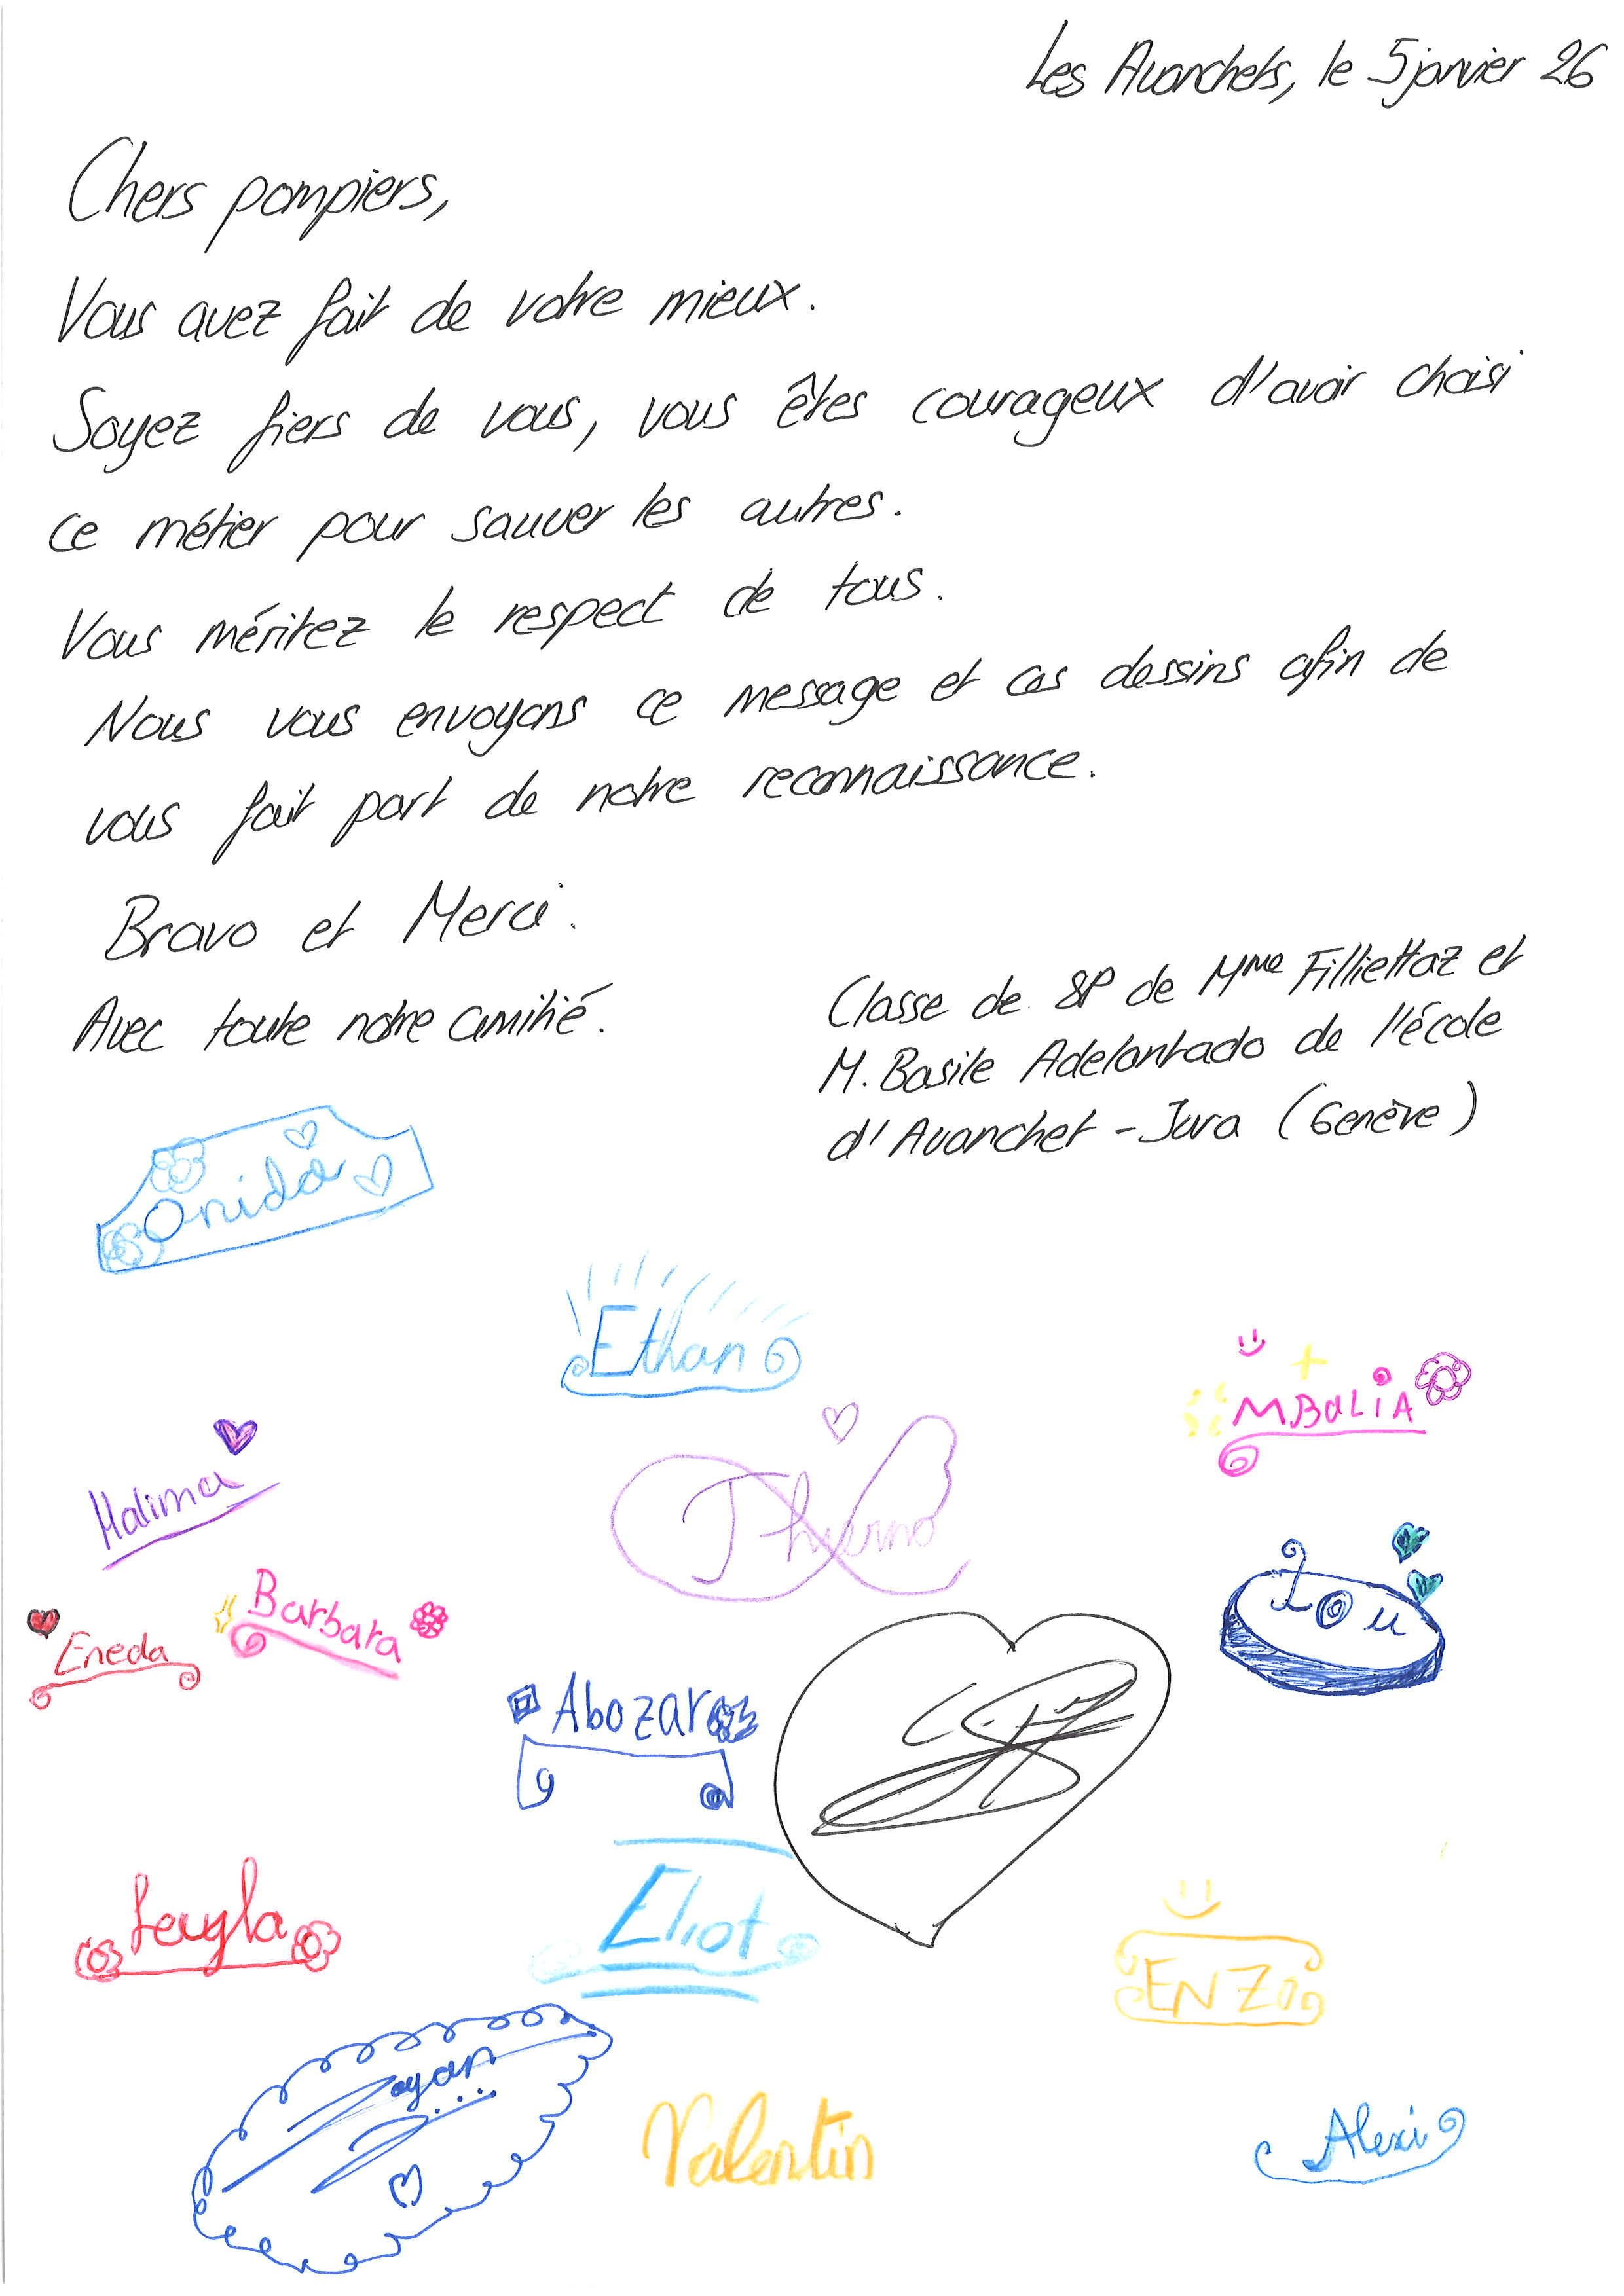 Les Avanchets, le 5 janvier 26
Chers pompiers,
Vous avez fait de votre mieux.
Soyez fiers de vous, vous êtes courageux d'avoir choisi
ce métier pour sauver les autres.
Vous méritez le respect de tous.
Nous vous envoyons ce message et ces dessins afin de
vous fait part de notre reconnaissance.
Bravo et Merci.
Avec toute notre amitié.
Classe de 8P de Mme Filliettaz et
M. Basile Adelantado de l'école
d'Avanchet-Jura (Genève)
Onida
Ethan
MBaLiA
Halima
Thierno
Lou
Barbara
Eneda
Abozar
Leyla
Eliot
ENZO
Zoyan
Valentin
Alexi